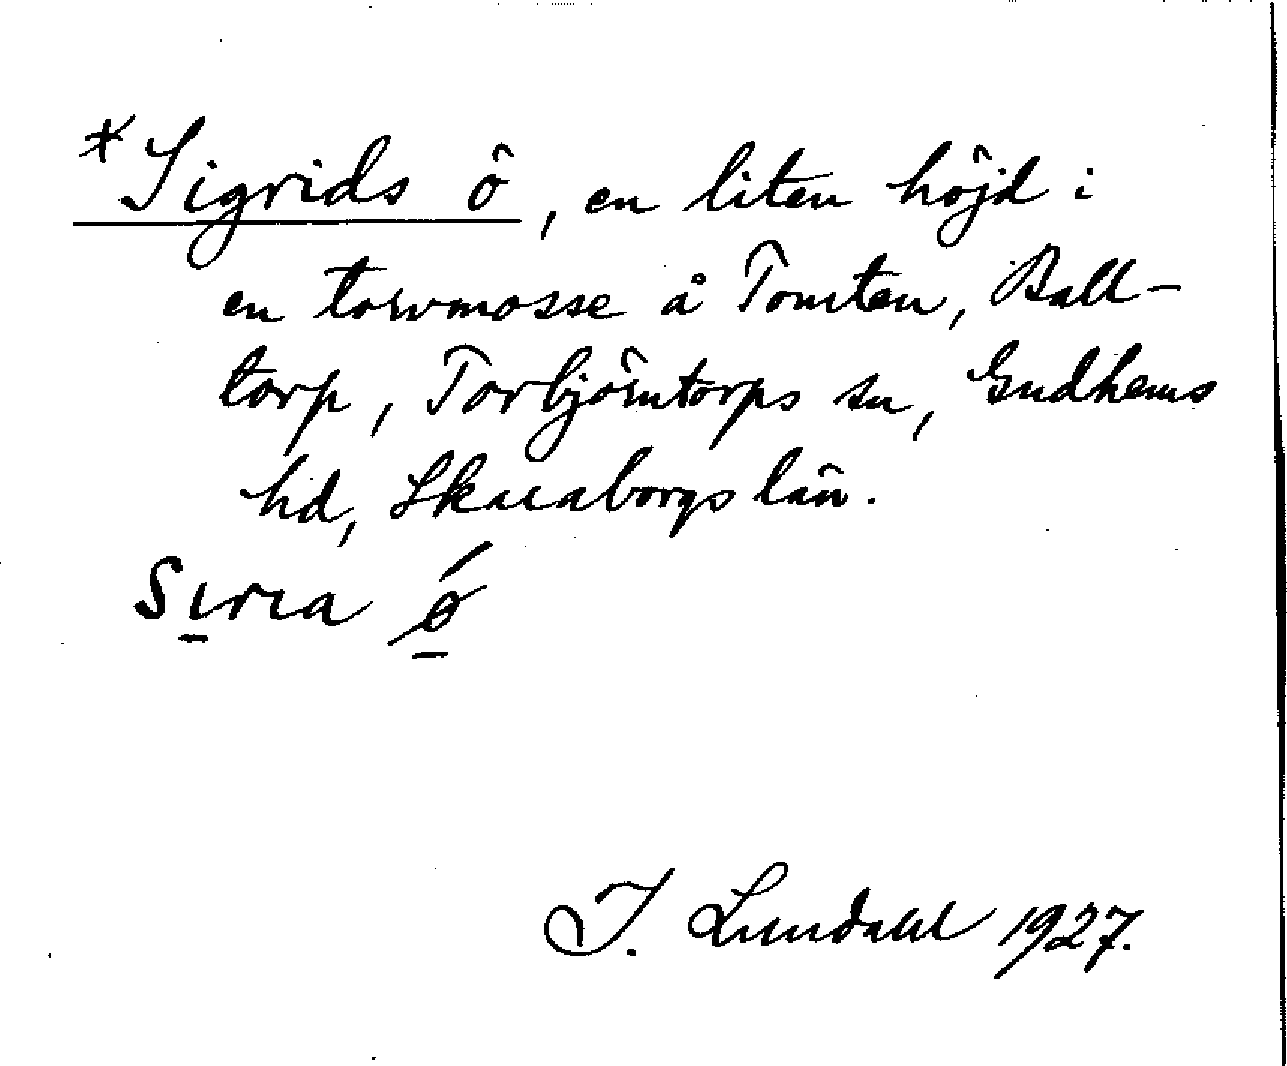 *Sigrids ö, en liten höjd i
en torvmosse å Tomten, Ball-
torp, Torbjörntorps sn, Gudhems
hd, Skaraborgs län.
Sɩrɩa ǿ
I. Lundahl 1927.